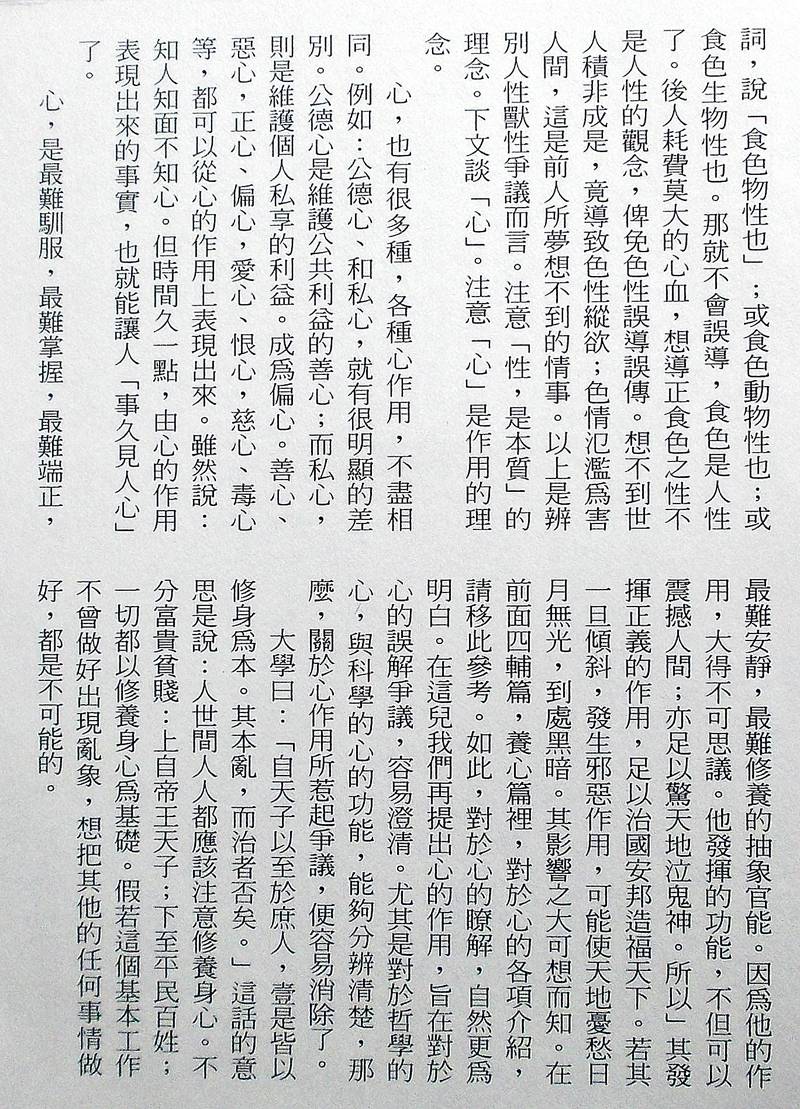 詞，說「食色物性也」；或食色動物性也；或
食色生物性也。那就不會誤導，食色是人性
了。後人耗費莫大的心血，想導正食色之性不
是人性的觀念，俾免色性誤導誤傳。想不到世
人積非成是，竟導致色性縱欲；色情氾濫爲害
人間，這是前人所夢想不到的情事。以上是辨
別人性獸性爭議而言。注意「性，是本質」的
理念。下文談「心」。注意「心」是作用的理
念。
心，也有很多種，各種心作用，不盡相
同。例如：公德心、和私心，就有很明顯的差
別。公德心是維護公共利益的善心；而私心，
則是維護個人私享的利益。成爲偏心。善心、
惡心，正心、偏心，愛心、恨心，慈心、毒心
等，都可以從心的作用上表現出來。雖然說：
知人知面不知心。但時間久一點，由心的作用
表現出來的事實，也就能讓人「事久見人心」
了。
心，是最難馴服，最難掌握，最難端正，
最難安靜，最難修養的抽象官能。因爲他的作
用，大得不可思議。他發揮的功能，不但可以
震撼人間；亦足以驚天地泣鬼神。所以」其發
揮正義的作用，足以治國安邦造福天下。若其
一旦傾斜，發生邪惡作用，可能使天地憂愁日
月無光，到處黑暗。其影響之大可想而知。在
前面四輔篇，養心篇裡，對於心的各項介紹，
請移此參考。如此，對於心的瞭解，自然更爲
明白。在這兒我們再提出心的作用，旨在對於
心的誤解爭議，容易澄清。尤其是對於哲學的
心，與科學的心的功能，能夠分辨清楚，那
麼，關於心作用所惹起爭議，便容易消除了。
大學曰：「自天子以至於庶人，壹是皆以
修身爲本。其本亂，而治者否矣。」這話的意
思是說：人世間人人都應該注意修養身心。不
分富貴貧賤：上自帝王天子；下至平民百姓；
一切都以修養身心爲基礎。假若這個基本工作
不曾做好出現亂象，想把其他的任何事情做
好，都是不可能的。